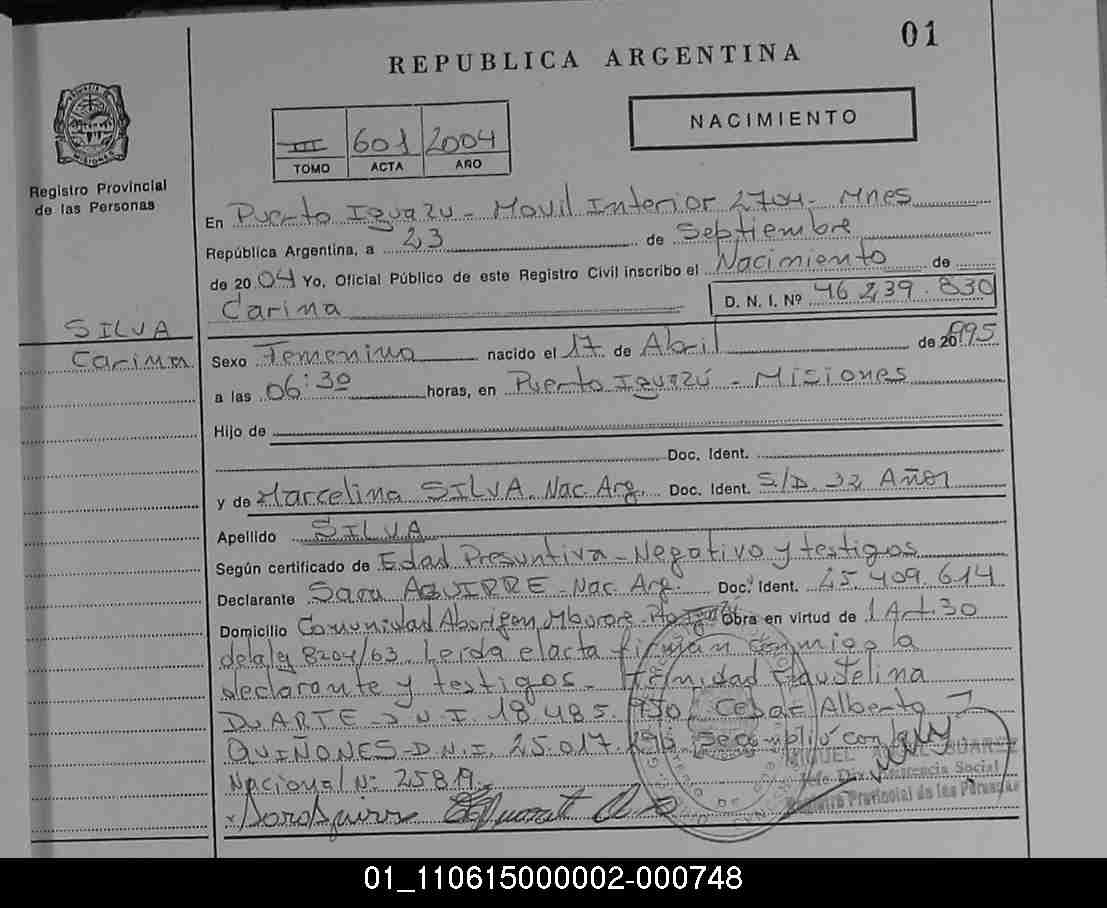 01
REPUBLICA ARGENTINA
NACIMIENTO
III 601 2004
TOMO ACTA AÑO
Registro Provincial
de las Personas
En Puerto Iguazu - Movil Interior 2704 - Mnes
República Argentina, a 23 de Septiembre
de 2004 Yo, Oficial Público de este Registro Civil inscribo el Nacimiento de
Carina D. N. I. Nº 46 239.830
SILVA
Carina
Sexo Femenino nacido el 17 de Abril de 20 1995
a las 06:30 horas, en Puerto Iguazú - Misiones
Hijo de
Doc. Ident.
y de Marcelina SILVA. Nac. Arg. Doc. Ident. S/D. 32 Años
Apellido SILVA
Según certificado de Edad Presuntiva - Negativo y testigos
Declarante Sara AGUIRRE - Nac. Arg. Doc. Ident. 25.409.614
Domicilio Comunidad Aborigen Mborore - Obra en virtud de 1 Art. 30
de la ley 8204/63. Leida el acta firman conmigo la
declarante y testigos - Trinidad
DUARTE - D.N.I. 18.485. Cesar Alberto
QUIÑONES - D.N.I. 25.017. Se cumplió con ley
Nacional Nº 25819.-
MIGUEL SUAREZ
Asistencia Social
Registro Provincial de las Personas
01_110615000002-000748